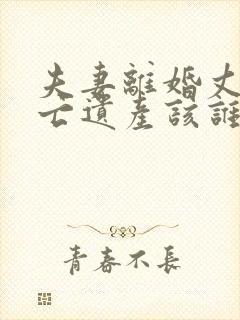 夫妻離婚丈
亡遺產該誰
青春不長